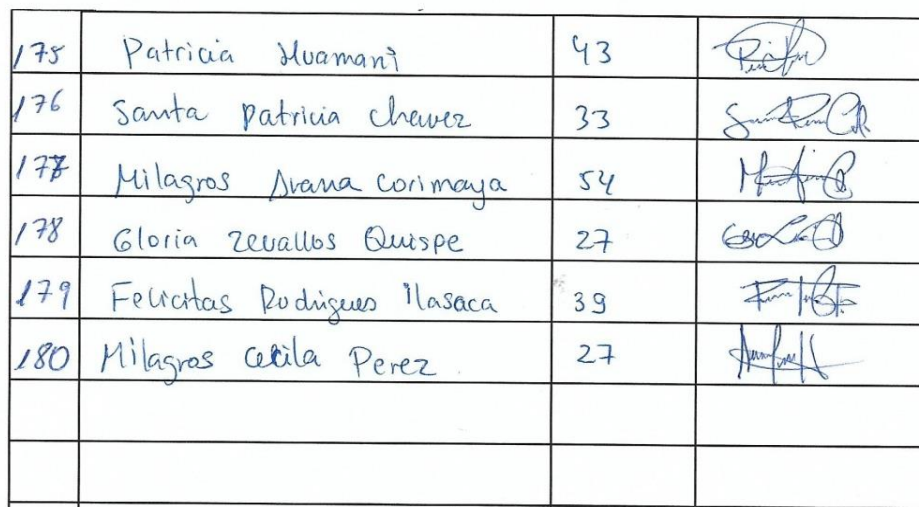 175 Patricia Huamani 43
176 Santa Patricia Chavez 33
177 Milagros Arana Corimaya 54
178 Gloria Zevallos Quispe 27
179 Felicitas Rodrigues Ilasaca 39
180 Milagros Cecila Perez 27